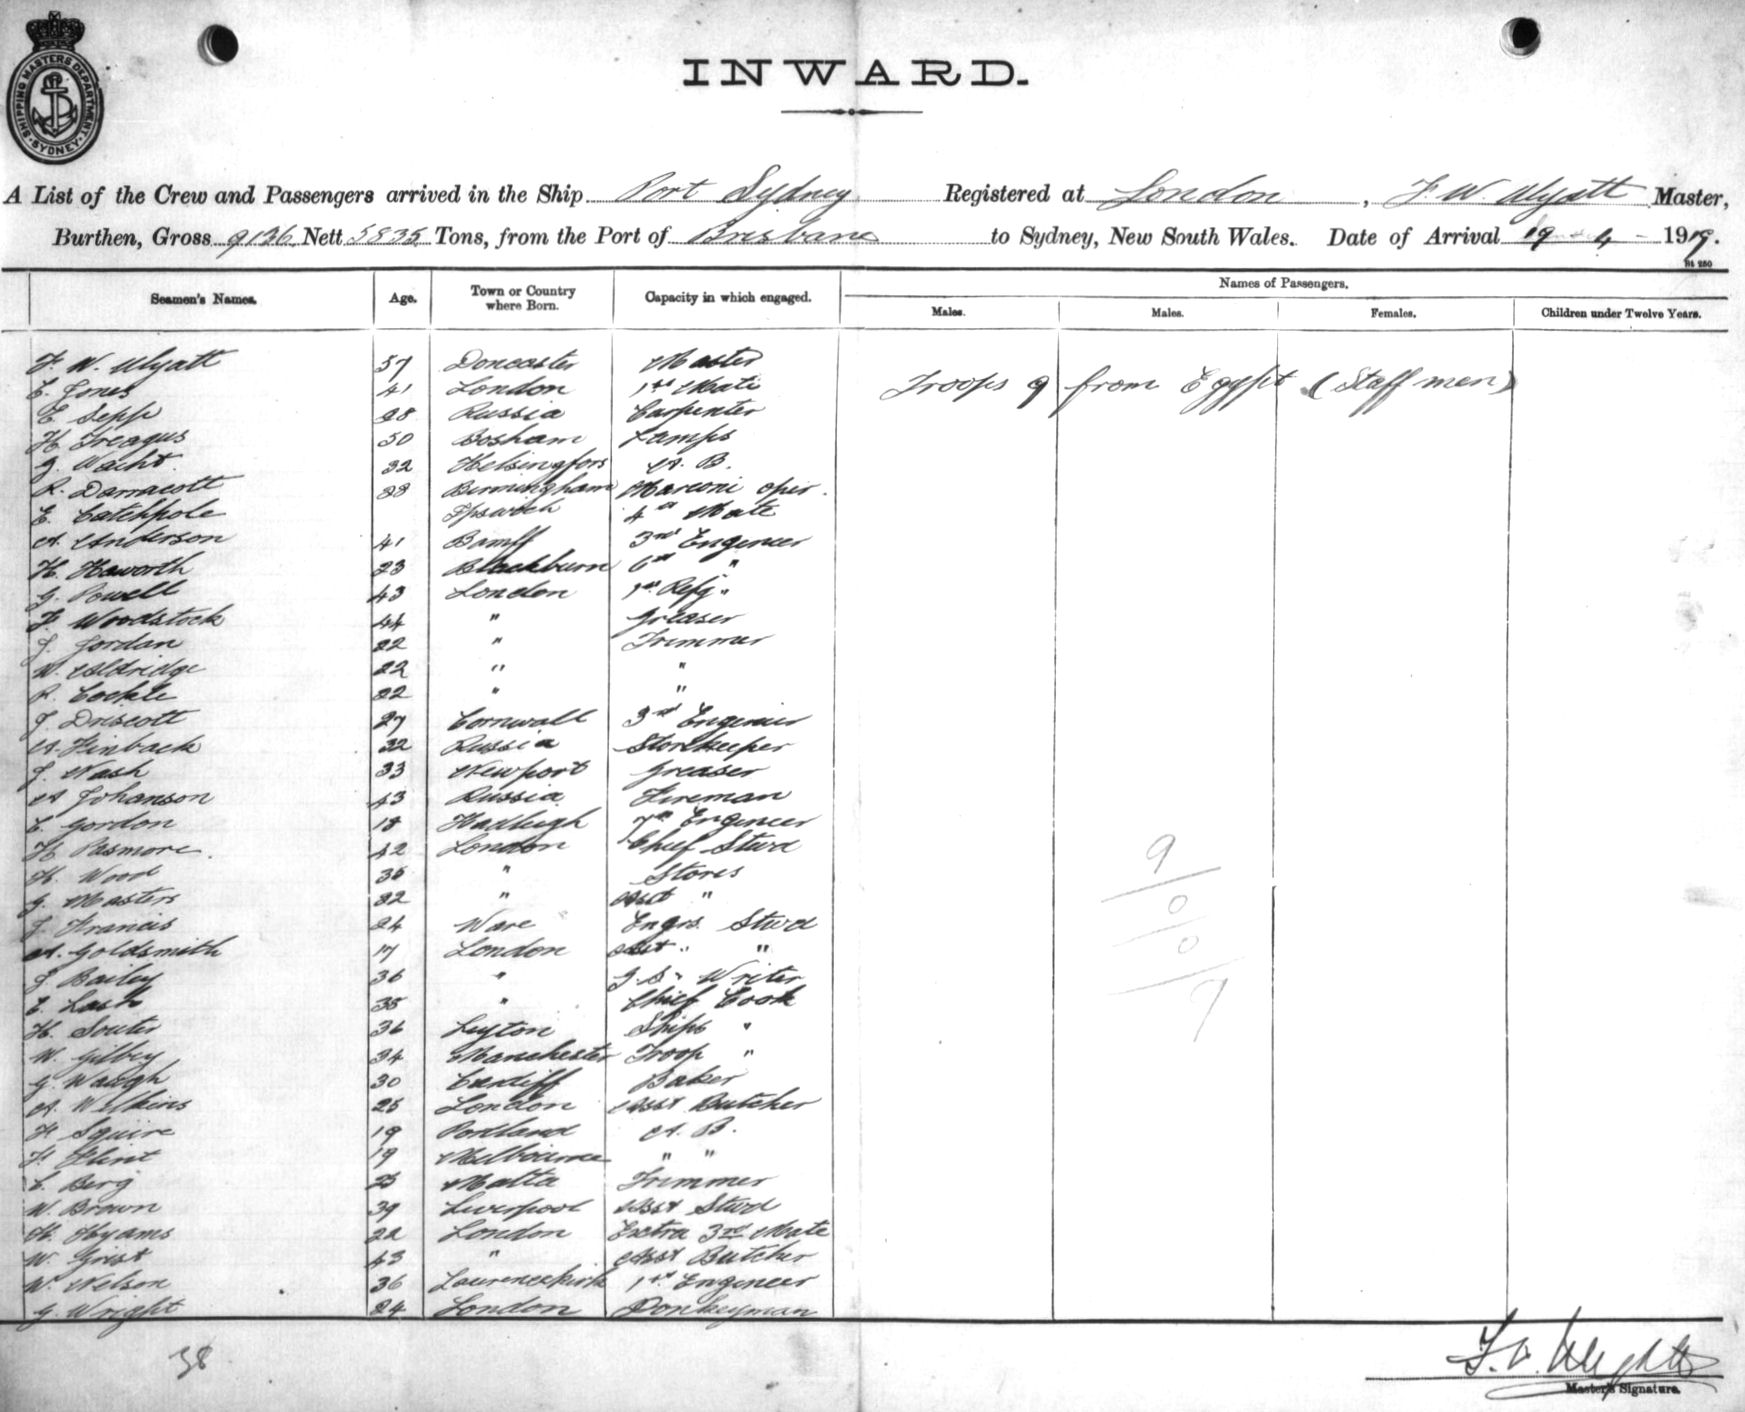 SHIPPING MASTERS DEPARTMENT SYDNEY
INWARD.
A List of the Crew and Passengers arrived in the Ship Port Sydney Registered at London, F. W. Wyatt Master,
Burthen, Gross 9136 Nett 5835 Tons, from the Port of Brisbane to Sydney, New South Wales. Date of Arrival 19 - 4 - 1919.
Seamen's Names. Age. Town or Country where Born. Capacity in which engaged. Names of Passengers.
Males. Males. Females. Children under Twelve Years.
F. W. Wyatt 57 Doncaster Master
E. Jones 41 London 1st Mate Troops 9 from Egypt (Staff men)
E Sepp 28 Russia Carpenter
H Treagus 50 Bosham Lamps
G. Wacht 32 Helsingfors A. B.
R. Darracott 28 Birmingham Marconi oper.
E. Catchpole Ipswich 4th Mate
A. Anderson 41 Banff 3rd Engineer
H. Haworth 23 Blackburn 6th "
G. Powell 43 London 1st Refg. "
F Woodstock 44 " Greaser
J. Jordan 22 " Trimmer
W. Aldridge 22 " "
R. Cockle 22 " "
J Driscott 27 Cornwall 3rd Engineer
A. Finback 32 Russia Storekeeper
J. Nash 33 Newport Greaser
A Johanson 43 Russia Fireman
E. Gordon 18 Hadleigh 7th Engineer
H Pasmore. 42 London Chief Stwd
H. Wood 36 " Stores
G. Masters 22 " Asst "
J. Francis 24 Ware Engrs. Stwd
A. Goldsmith 17 London Asst " "
J Bailey 36 " G. S. Writer
E Lash 35 " Chief Cook
H. Souter 36 Leyton Ships "
W. Gilbey 34 Manchester Troop "
G. Waugh 30 Cardiff Baker
A. Wilkins 25 London Asst Butcher
F Squire 19 Portland A. B.
F. Flint 19 Melbourne " "
E. Berg 25 Malta Trimmer
W. Brown 39 Liverpool Asst Stwd
H. Hyams 22 London Extra 3rd Mate
W. Grist 43 " Asst Butcher
W. Nelson 36 Laurencekirk 1st Engineer
G. Wright 24 London Donkeyman
9/0/0/7
38
Master's Signature.